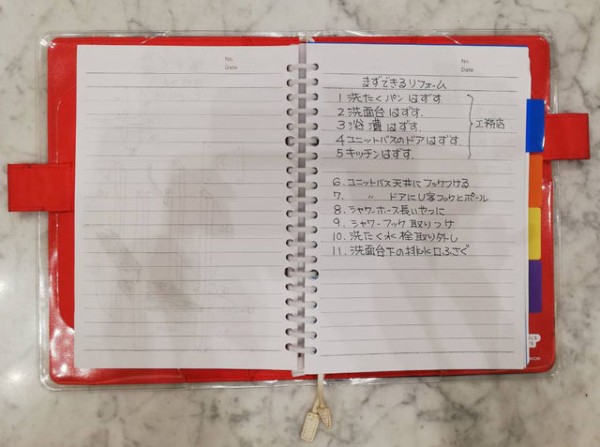 No.
Date
No.
Date
まずできるリフォーム
1 洗たくパン はずす
2 洗面台 はずす.
3 浴槽 はずす.
4 ユニットバスのドア はずす.
5 キッチンはずす.
工務店
6. ユニットバス天井に フックつける
7. 〃 ドアにU字フックとポール
8. シャワーホース長いやつに
9. シャワーフック 取りつけ
10. 洗たく水栓取り外し
11. 洗面台下の排水口ふさぐ